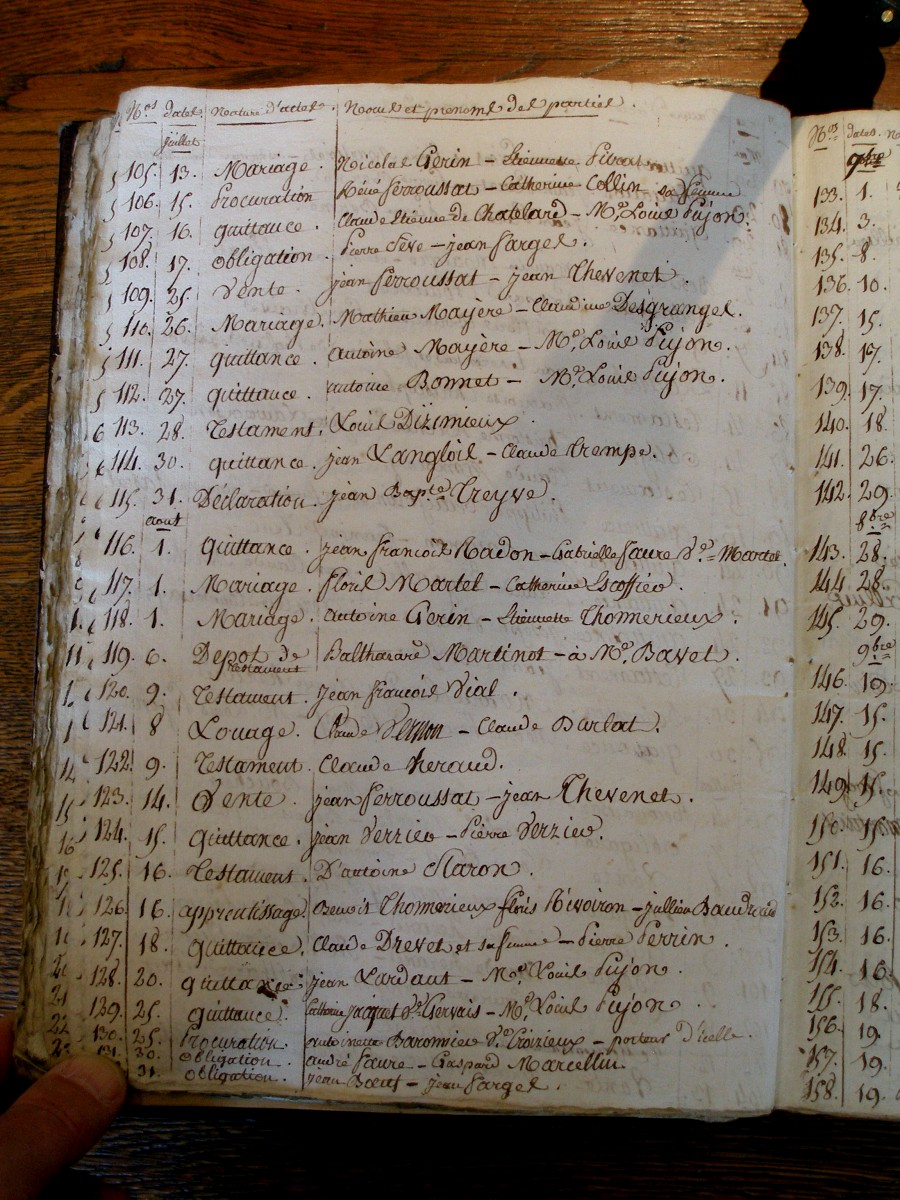 Nos dates Nature d'actes Noms et prenoms des parties.
juillet
105. 13. Mariage. Nicolas Gerin - Etiennette
106. 15. Procuration Réné Ferroussat - Catherine Collin sa femme
107. 16. quittance. Claude Etienne de Chatelard - Me. Louis Pujon.
108. 17. obligation. Pierre Seve - jean Farges.
109. 25. Vente. jean Ferroussat - jean Thevenet.
110. 26. Mariage. Mathieu Mayère - Claudine Desgranges.
111. 27. quittance. antoine Mayère - Me. Louis Pujon.
112. 27. quittance. antoine Bonnet - Me. Louis Pujon.
113. 28. Testament. Louis Dizimieux.
114. 30. quittance. jean Langlois - Claude trempe.
115. 31. Déclaration. jean Bapte. Treyve.
aout
116. 1. Quittance. jean francois Radon - Gabrielle faure Ve. Martel.
117. 1. Mariage. floris Martel - Catherine Escoffier.
118. 1. Mariage. antoine Gerin - Etiennette Thomerieux.
119. 6. Depot de testament Balthazard Martinot - à Me. Bavet.
120. 9. Testament. jean francois Vial.
121. 8 Louage. Claude Vernon - Claude Barlat.
122. 9. Testament. Claude heraud.
123. 14. Vente. jean Ferroussat - jean Thevenet.
124. 15. Quittance. jean Verrier - Pierre Verrier.
125. 16. Testament. D'antoine Claron.
126. 16. apprentissage. Benoit Thomerieux floris Rivoiron - jullien Baudrand
127. 18. Quittance. Claude Drevet et sa femme - Pierre Perrin.
128. 20. quittance jean Lardaut - Me. Louis Pujon.
129. 25. quittance. Catherine jacquet Ve. Gervais - Me. Louis Pujon
130. 25. Procuration antoinette Baronnier Ve. Croizieux - porteur d'icelle
131. 30. obligation. andré Faure - Gaspard Marcellin
31. obligation. jean Bœuf - jean Farges.
Nos dates. N
9bre
133. 1.
134. 3.
135. 8.
136. 10.
137. 15.
138. 17.
139. 17.
140. 18.
141. 26.
142. 29.
8bre
143. 28.
144. 28.
145. 29.
9bre
146. 19.
147. 15.
148. 15.
149. 15.
150. 15.
151. 16.
152. 16.
153. 16.
154. 16.
155. 18.
156. 19.
157. 19.
158. 19.